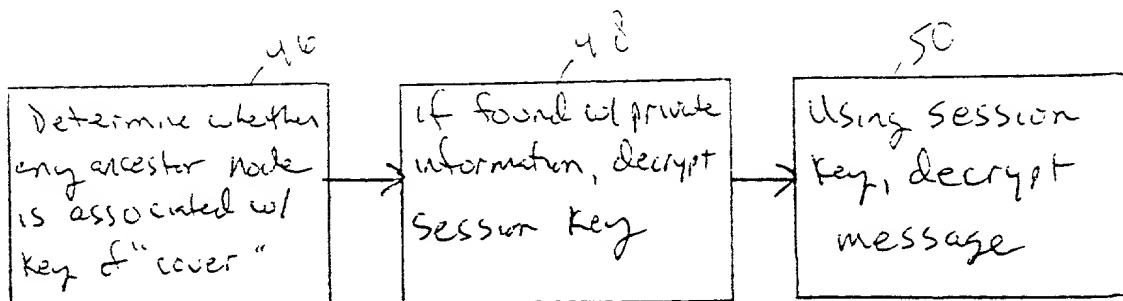 46
Determine whether
any ancestor node
is associated w/
key of "cover"
48
if found w/ private
information, decrypt
session key
50
Using session
key, decrypt
message